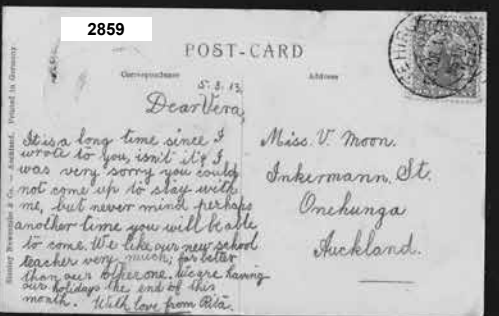 2859
POST-CARD
Correspondence
Address
5.8.13.
Dear Vera,
It is a long time since I
wrote to you, isn't it? I
was very sorry you could
not come up to stay with
me, but never mind perhaps
another time you will be able
to come. We like our new school
teacher very much; far better
than our other one. We are having
our holidays the end of this
month. With love from Rita.
Miss. V. Moon.
Inkermann. St.
Onehunga
Auckland.
Stanley Newcombe & Co. — Auckland. Printed in Germany